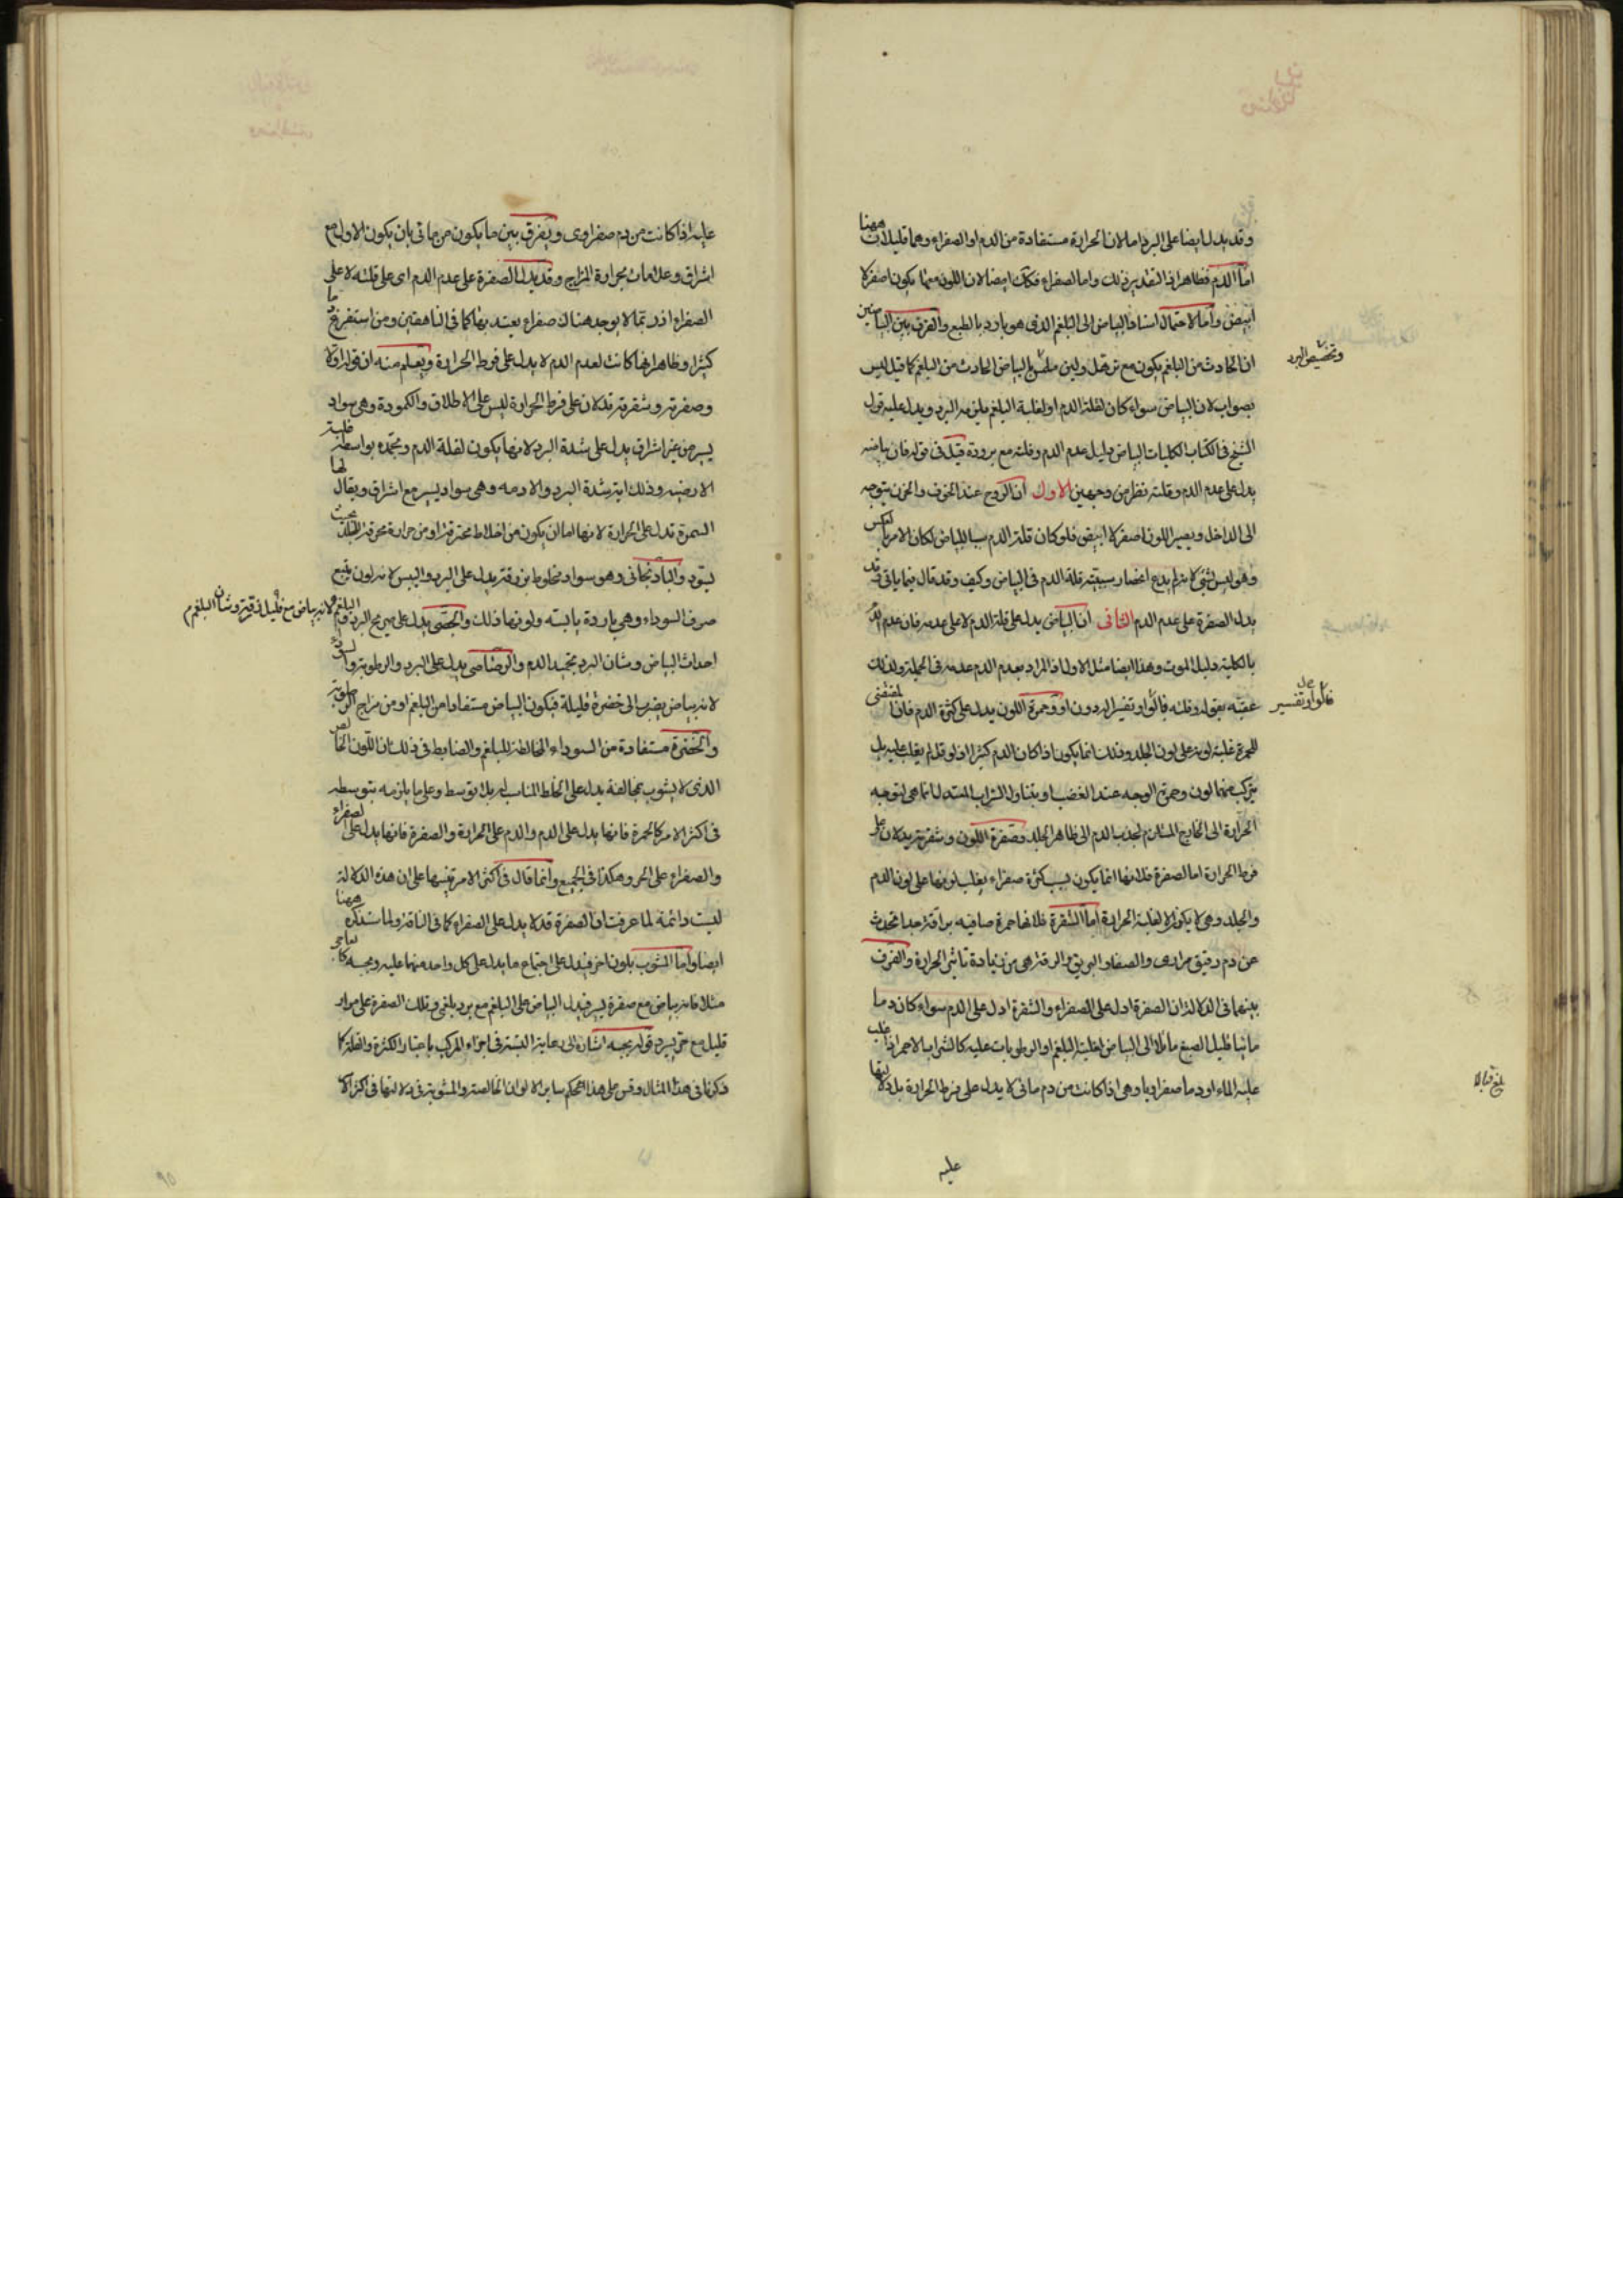 وقد يدل ايضا على البرد اما لان الحرارة مستفادة من الدم او الصفراء وهما قليلان ههنا
اما الدم فظاهر اذ التقدير ذلك واما الصفراء فكان ايضا لان اللون معها يكون اصفر لا
ابيض واما لاحتمال اسناد البياض الى البلغم الذى هو بارد بالطبع والفرق بين البياضين
ان الحادث من البلغم يكون مع ترهل ولين ملمس البياض الحادث من البلغم كما قيل ليس
وتخصيص البرد
بصواب لان البياض سواء كان لقلة الدم او لغلبة البلغم يلزمه البرد ويدل عليه قول
الشيخ فى الكتاب الكليات البياض دليل عدم الدم وقلته مع برودة قيل فى قوله فان بياضه
يدل على عدم الدم وقلته نظر من وجهين الاول ان الروح عند الخوف والحزن يتوجه
الى الداخل ويصير اللون اصفر لا ابيض فلو كان قلة الدم سببا للبياض لكان الامر بالعكس
وهو ليس لشئ لانه لم يدع انحصار سببية قلة الدم فى البياض وكيف وقد قال فيما ياتى قد
يدل الصفرة على عدم الدم الثانى ان البياض يدل على قلة الدم لا على عدمه فان عدم الدم
بالكلية دليل الموت وهذا ايضا مثل الاول اذ المراد بعدم الدم عدمه فى الجملة ولذلك
عقبه بقوله وقلته قالوا او تفسير الردون او وحمرة اللون يدل على كثرة الدم فان المقتضى
قالوا وتفسير
للحمرة غلبة لونه على لون الجلد وذلك انما يكون اذا كان الدم كثيرا اذ لو قل لم يغلب عليه بل
يتركب منهما لون وحمرة الوجه عند الغضب او بتناول الشراب المستدل انما هى لتوجه
الحرارة الى الخارج المستلزم لجذب الدم الى ظاهر الجلد وصفرة اللون وشقرته يدلان على
فرط الحرارة اما الصفرة فلانها انما يكون بسبب كثرة صفراء يغلب لونها على لون الدم
والجلد وهى لا يكون الا لغلبة الحرارة اما الشقرة فلانها حمرة صافية براقة جدا تحدث
عن دم رقيق مرارى والصفاء والبريق والرقة هى من زيادة تاثير الحرارة والفرق
بينهما فى الدلالة ان الصفرة ادل على الصفراء والشقرة ادل على الدم سواء كان دما
مائيا قليل الصبغ مائلا الى البياض لغلبة البلغم او الرطوبات عليه كالشراب الاحمر اذا غلب
عليه الماء او دما صفراويا وهى اذا كانت من دم مائى لا يدل على فرط الحرارة بل دلالتها
بلغ قبالا
عليه
عليه اذا كانت من دم صفراوى ويفرق بين ما يكون من مائى بان يكون الاول مع
اشراق وعلامات بحرارة المزاج وقد يدل الصفرة على عدم الدم اى على قلته لا على
الصفراء اذ ربما لا يوجد هناك صفراء يعتد بها كما فى الناقهين ومن استفرغ ما
كثيرا وظاهر انها كانت لعدم الدم لا يدل على فرط الحرارة ويعلم منه ان قوله اولا
وصفرته وشقرته تدلان على فرط الحرارة ليس على الاطلاق والكمودة وهى سواد
يسير من غير اشراق يدل على شدة البرد لانها يكون لقلة الدم وتجمده بواسطة غلبة
الارضية وذلك اية شدة البرد والادمه وهى سواد يسير مع اشراق ويقال لها
السمرة تدل على الحرارة لانها اما ان يكون من اخلاط محترقة او من حرارة محرقة للجلد بحيث
يسود والباذنجانى وهو سواد مخلوط بزرقة يدل على البرد واليبس لانه لون يتبع
صرف السوداء وهى باردة يابسة ولونها ذلك والجصى يدل على صريح البرد والبلغم لانه بياض مع قليل زرقة وشان البلغم
احداث البياض وشان البرد تجميد الدم والرصاصى يدل على البرد والرطوبة والسوداء
لانه بياض يضرب الى خضرة قليلة فيكون البياض مستفادا من البلغم او من مزاج الرطوبة
والخضرة مستفادة من السوداء المخالطة للبلغم والضابط فى ذلك ان اللون الخالص
الذى لا يشوب بمخالفة يدل على الخلط المناسب له بلا توسط وعلى ما يلزمه بتوسطه
فى اكثر الامر كالحمرة فانها يدل على الدم والدم على الحرارة والصفرة فانها يدل على الصفراء
والصفراء على الحر وهكذا فى الجميع وانما قال فى اكثر الامر تنبيها على ان هذه الدلالة
ليست دائمة لما عرفت ان الصفرة قد لا يدل على الصفراء كما فى الناقه ولما ستذكره ههنا
ايضا واما المشوب بلون اخر فيدل على اجتماع ما يدل على كل واحد منهما عليه وبحسبه كالعاجى
مثلا فانه بياض مع صفرة يسيرة فيدل البياض على البلغم مع برد بلغمى وتلك الصفرة على مرار
قليل مع حر يسير وقوله بحسبه اشارة الى رعاية النسبة فى اجزاء المركب باعتبار الكثرة والقلة كما
ذكرنا فى هذا المثال وقس على هذا الحكم سائر الالوان الخالصة والمشوبة فى دلالتها فى اكثر الا